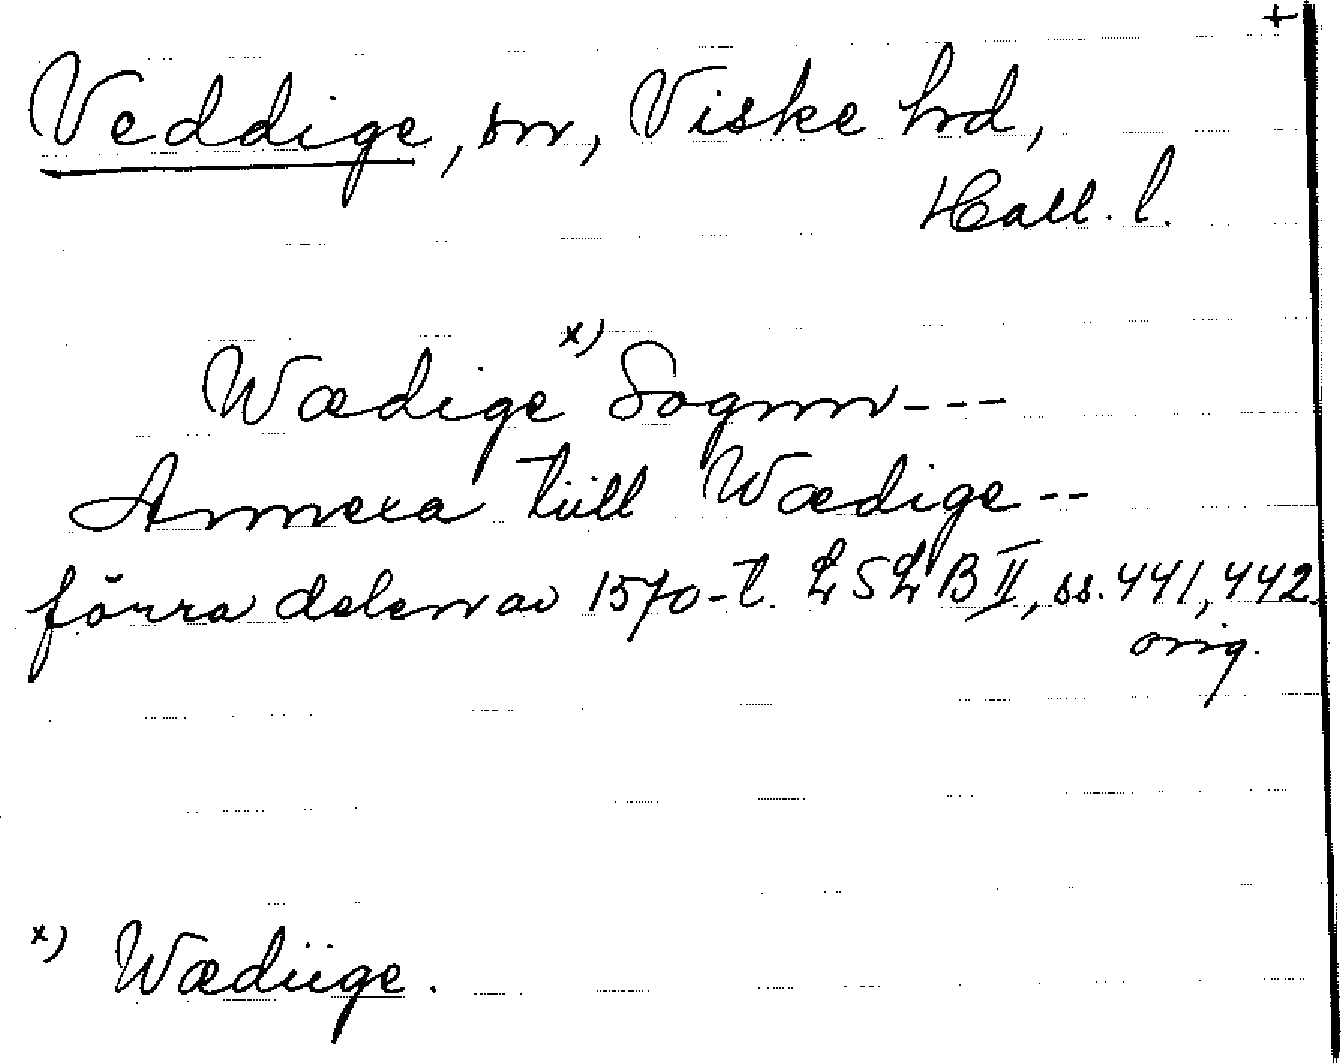 +
Veddige, sn, Viske hd,
Hall. l.
Wædige x) Sognn ---
Annexa tiill Wædige --
förra delen av 1570-t. LSLB II, ss. 441, 442.
orig.
x) Wædiige.